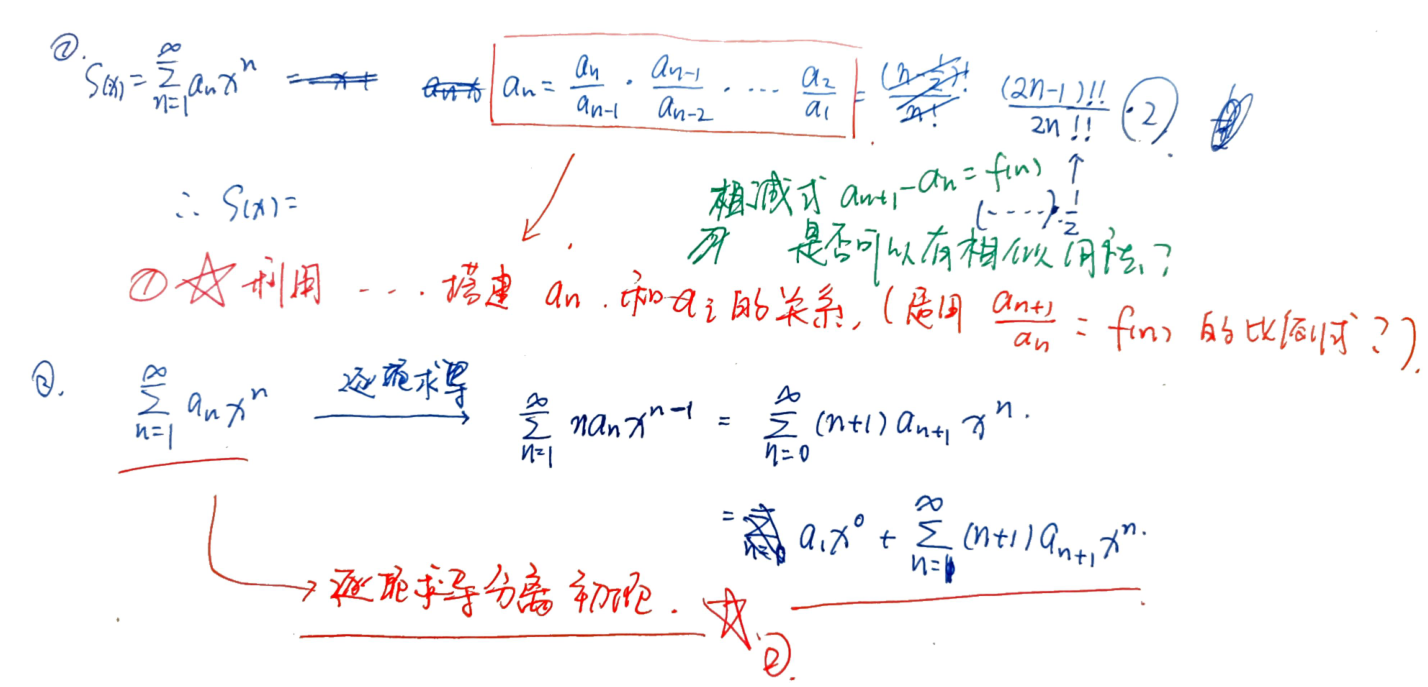 ②. S(x) = ∑_{n=1}^{∞} a_n x^n   a_n = \frac{a_n}{a_{n-1}} · \frac{a_{n-1}}{a_{n-2}} · ⋯ \frac{a_2}{a_1} = \frac{(2n-1)!!}{2n!!} · 2
∴ S(x) =
相减式 a_{n+1} - a_n = f(n) ↑
(----)·\frac{1}{2}
是否可以有相似用法?
① ☆ 利用 ... 搭建 a_n 和 a_i 的关系, (适用 \frac{a_{n+1}}{a_n} = f(n) 的比值式?).
②. ∑_{n=1}^{∞} a_n x^n 逐项求导 → ∑_{n=1}^{∞} n a_n x^{n-1} = ∑_{n=0}^{∞} (n+1) a_{n+1} x^n.
= a_1 x^0 + ∑_{n=1}^{∞} (n+1) a_{n+1} x^n.
→ 逐项求导分离初项. ☆ ②.